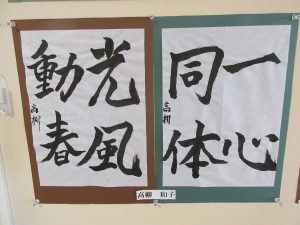 一心
同体
高柳
光風
動春
高柳
高柳 和子